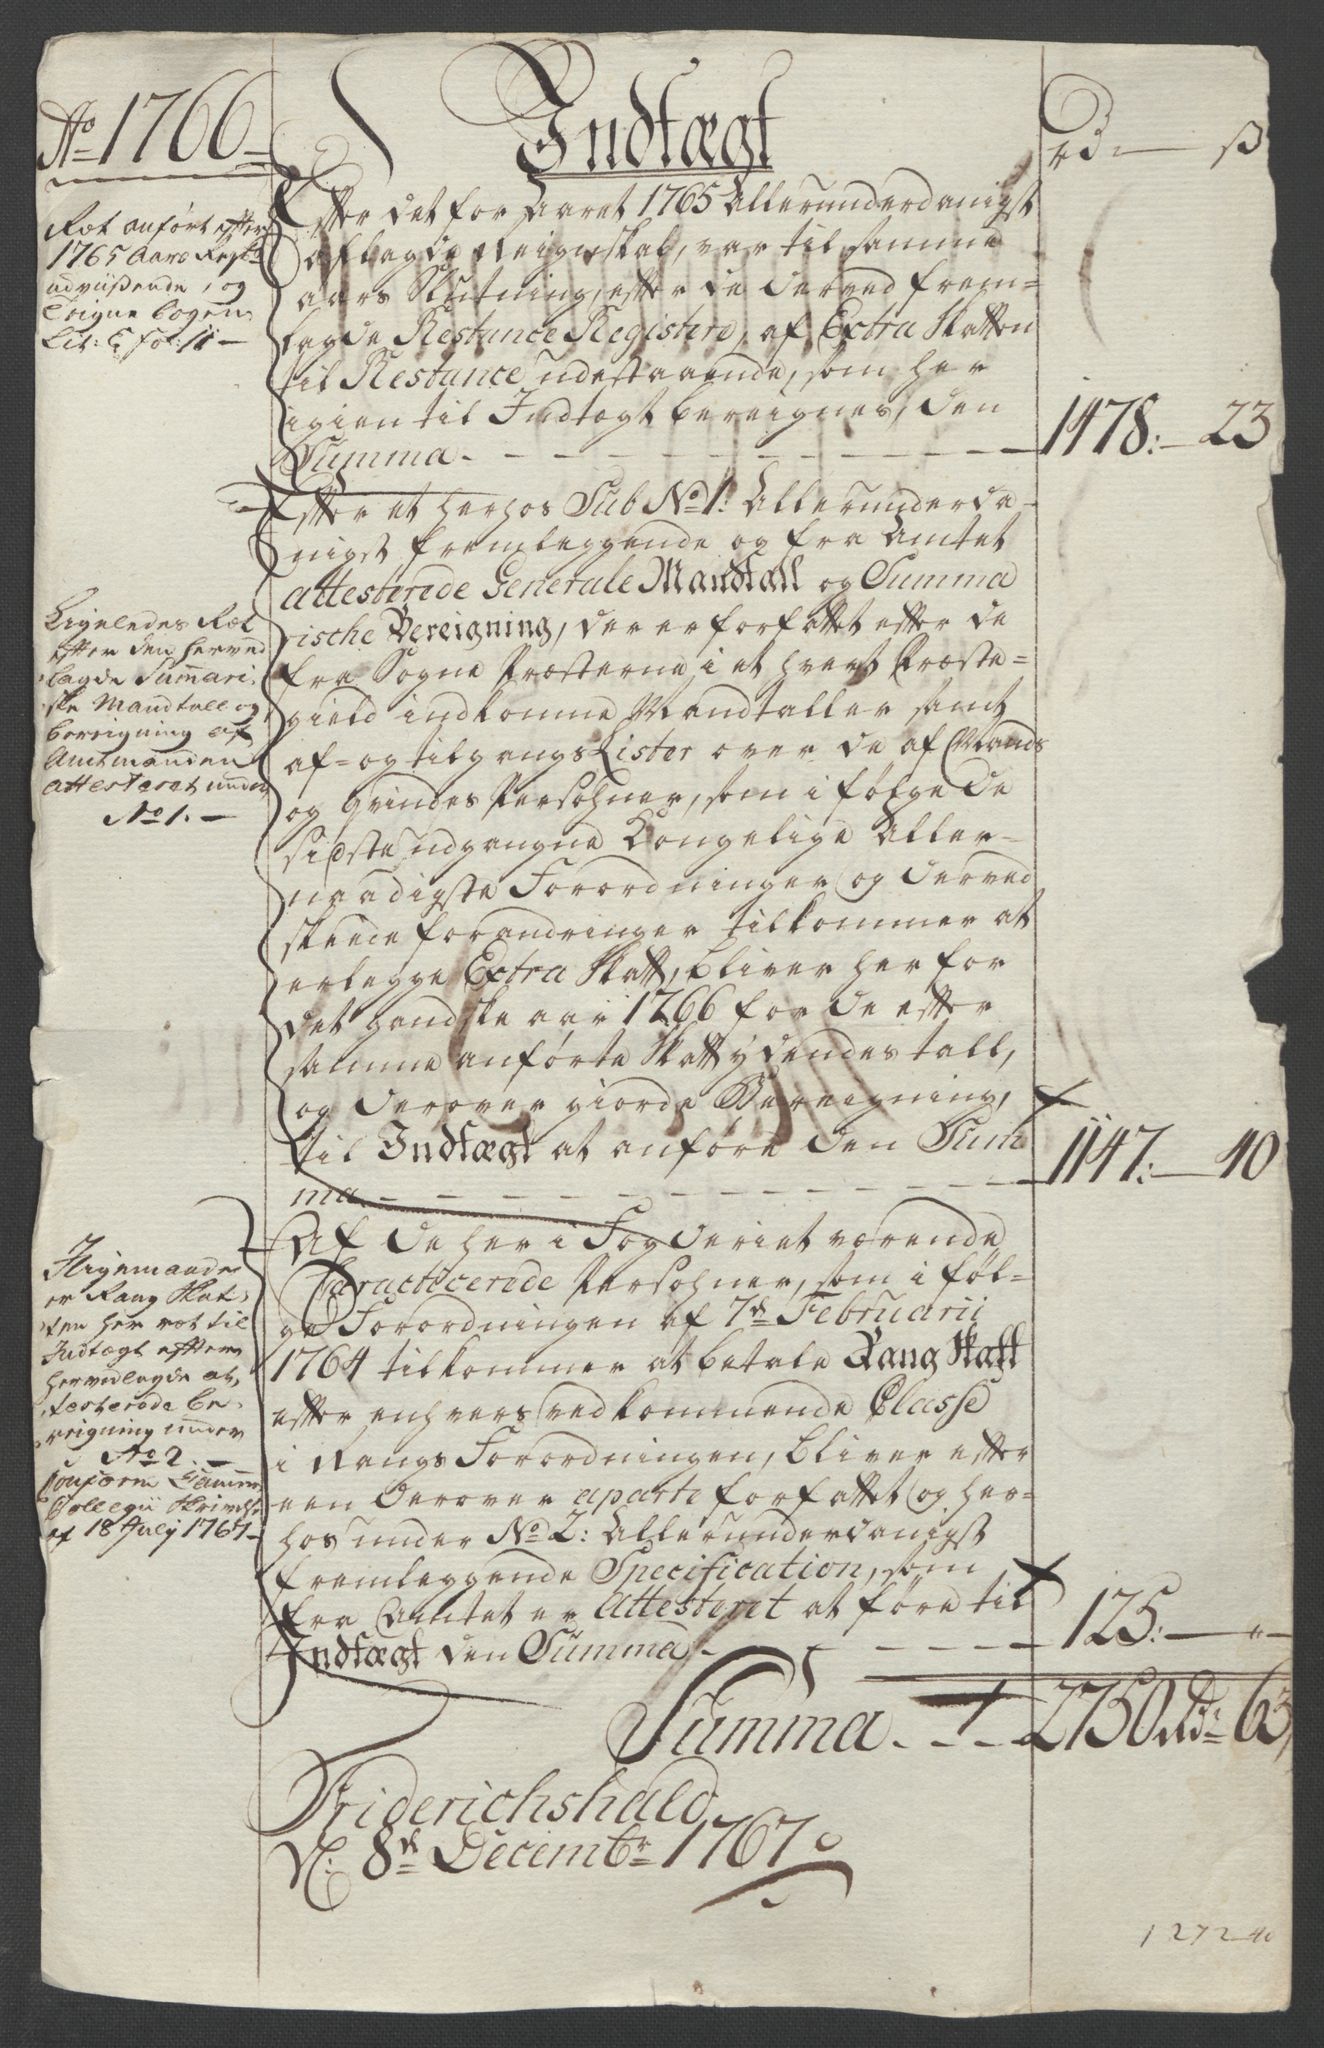 Ao 1766
Indtægt
Rd ß
Ræt anført efter
1765 Aars Regsk:
udviisende, og
Lit: G fol: 11
Efter det for Aaret 1765 Allerunderdanigst
aflagde Reignskab, var til samme
aars Slutning, efter de derved frem-
lagde Restance Registere, af Extra Skatten
til Restance udestaaende, som her
igien til Indtægt bereignes, den
Summa 1478: 23
Ligeledes Ræt
efter den herved
lagde Summari-
ske Mandtall og
bereigning af
Amtmanden
attesteret under
No 1.
Efter et herhos Sub No 1: Allerunderda-
nigst fremleggende og fra Amtet
attesterede Generale Mandtall og Summa
rische Bereigning, der er forfattet efter de
fra Sogne Præsterne i et hvert Præste-
gield indkomne Mandtaller samt
af- og tilgangs Lister over de af Mands
og Qvindes Persohner, som i følge de
sidste udgangne Kongelige Aller-
naadigste Forordninger og derved
skeede forandringer tilkommer at
erlegge Extra Skatt, bliver her for
det gandske aar 1766 for de efter
samme anførte Skatt ydendes tall,
og derover giorde Bereigning,
til Indtægt at anføre den Sum
ma 1147: 40
Ligemaade
er Rang Skat-
ten her ræt til
Indtægt efter
hervedlagde at-
testerede be-
reigning under
No 2.
Conform Cammer
Collegii Skrivelse
af 18 July 1767
Af de her i Fogderiet værende
Caracticerede Persohner, som i føl-
ge Forordningen af 7de Februarii
1764 tilkommer at betale Rang Skatt
efter enhvers vedkommende Classe
i Rangs Forordningen, bliver efter
een derover aparte forfattet og her-
hos under No 2: Allerunderdanigst
fremleggende Specification, som
fra Amtet er Attesteret at føre til
Indtægt den Summa 125: "
Summa 2750 Rd: 63
Friderichshald
d: 8de Decembr 1767
1272 40